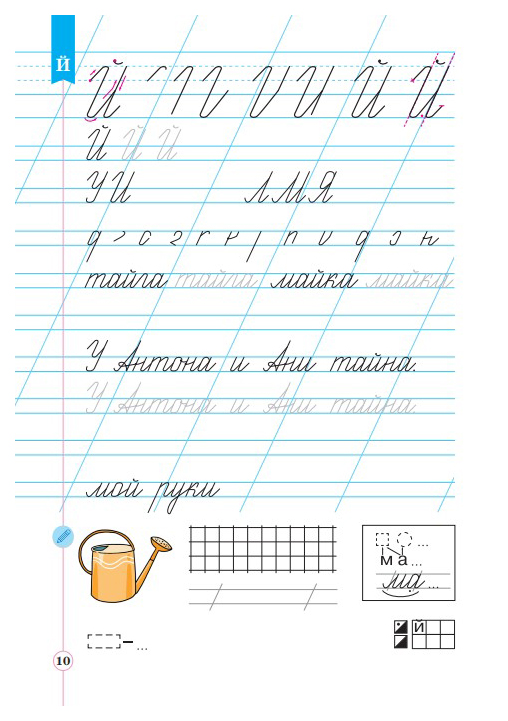 Й
Й Й Й
Й Й Й
У И Л М Я
тайга тайга майка майка
У Антона и Ани тайна.
У Антона и Ани тайна.
мой руки
...
м а ...
ма ...
– ...
й
10